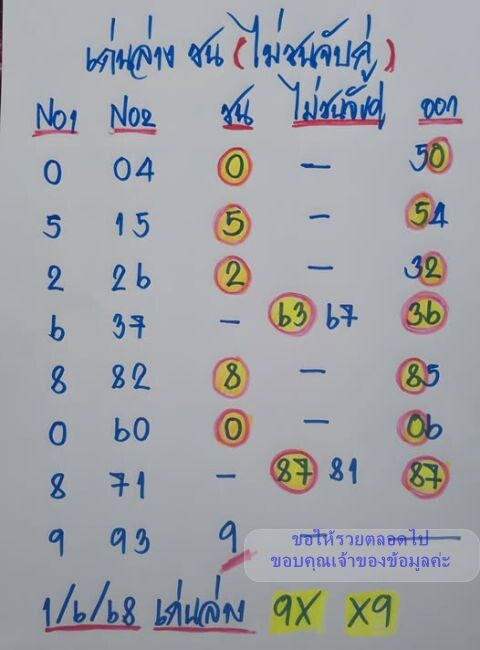 เด่นล่าง ชน (ไม่ชนจับคู่)
No1 No2 ชน ไม่ชนจับคู่ ออก
0 04 0 - 50
5 15 5 - 54
2 26 2 - 32
6 37 - 63 67 36
8 82 8 - 85
0 60 0 - 06
8 71 - 87 81 87
9 93 9 — —
ขอให้รวยตลอดไป
ขอบคุณเจ้าของข้อมูลค่ะ
1/6/68 เด่นล่าง 9X X9